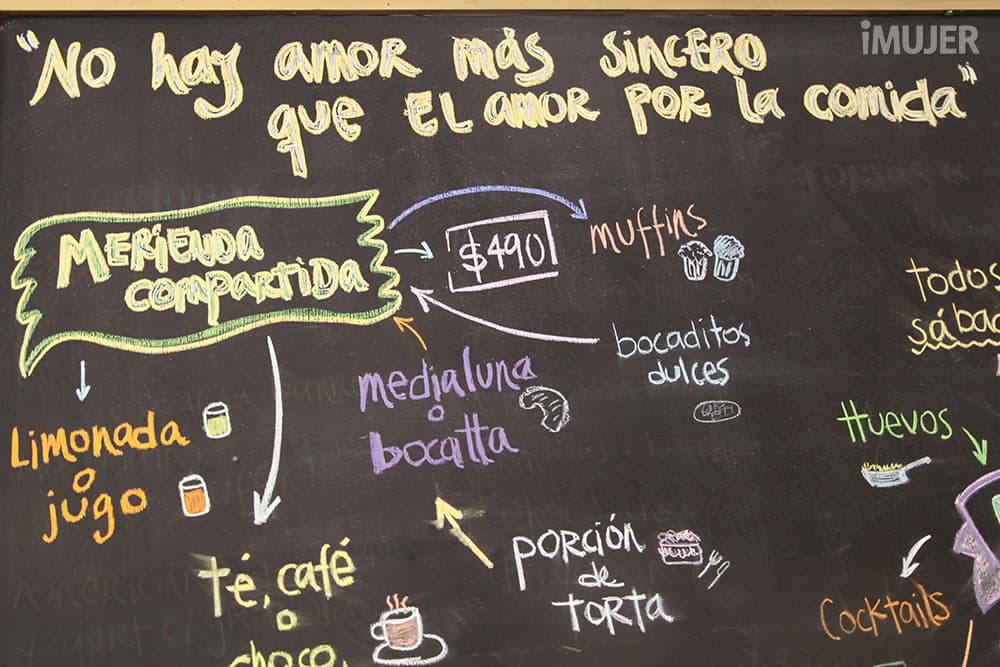 iMUJER
"No hay amor más sincero
que el amor por la comida"
Merienda
compartida
$490
muffins
bocaditos
dulces
medialuna
o
bocatta
Limonada
o
jugo
té, café
o
choco.
porción
de
torta
todos
Huevos
Cocktails